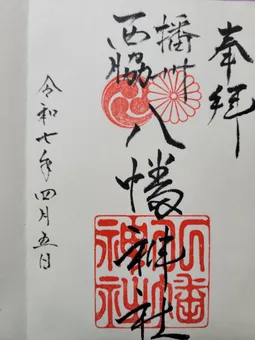 奉拝
播州
西脇
八幡神社
令和七年四月五日
八幡
神社